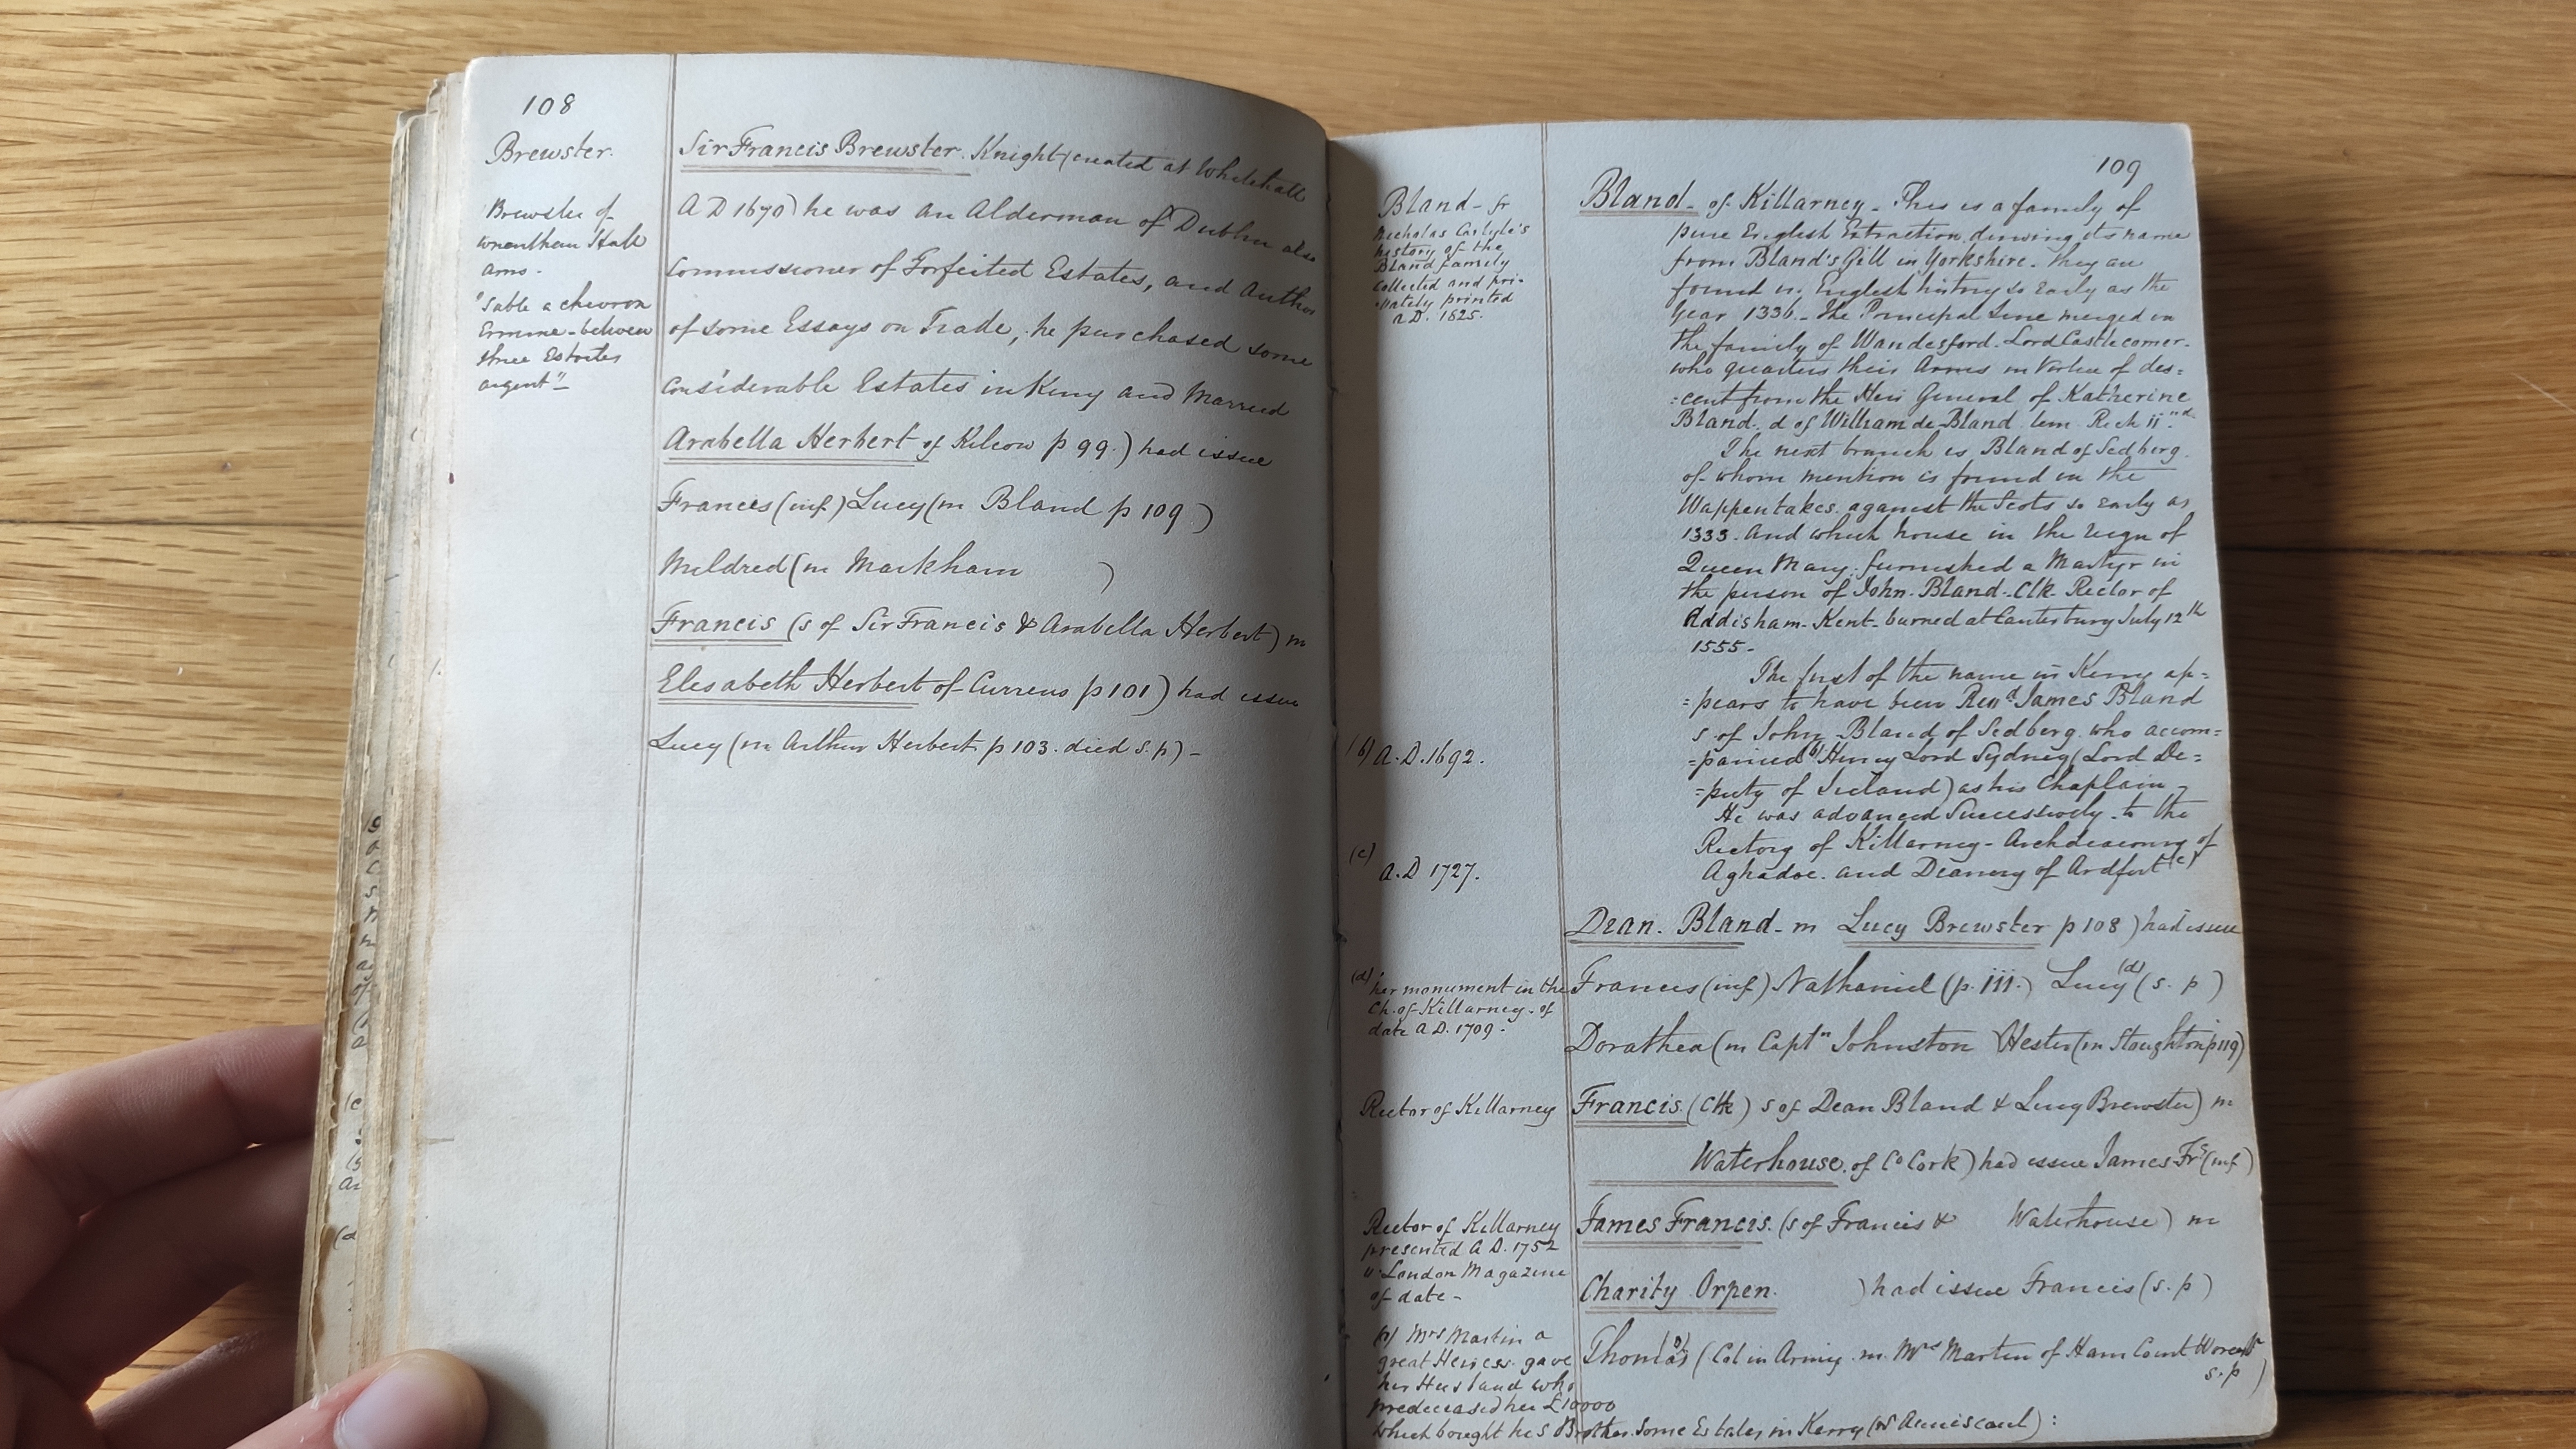 108
Brewster.
Brewster of
wrentham Hall
arms -
"Sable a chevron
Ermine - between
three Estoiles
argent" -
Sir Francis Brewster. Knight (created at Whitehall
A D 1670) he was an Alderman of Dublin also
Commissioner of Forfeited Estates, and Author
of some Essays on Trade, he purchased some
considerable Estates in Kerry and Married
Arabella Herbert of Kilcow p 99.) had issue
Francis (inf) Lucy (m Bland p 109)
Mildred (m Markham )
Francis (s of Sir Francis & Arabella Herbert) m
Elisabeth Herbert of Currens p 101) had issue
Lucy (m Arthur Herbert p 103. died s.p) -
109
Bland - fr
Nicholas Carlyle's
history of the
Bland family
Collected and pri-
-vately printed
A.D. 1825.
(b) A.D. 1692.
(c)
A.D 1727.
(d) her monument in the
Ch. of Killarney. of
date A.D. 1709 -
Rector of Killarney
Rector of Killarney
presented A D. 1752
London Magazine
of date -
Mrs Martin a
great Heiress gave
her Husband who
predeceased her £10000
which bought his Brother some Estates in Kerry :
Bland - of Killarney - This is a family of
pure English Extraction, deriving its name
from Bland's Gill in Yorkshire - they are
found in English history so Early as the
Year 1336 - The Principal Line merged in
the family of Wandesford - Lord Castlecomer -
who quarters their Arms in Virtue of des=
=cent from the Heir General of Katherine
Bland. d of William de Bland tem Rich ii"d
The next branch is Bland of Sedberg.
of whom mention is found in the
Wappentakes against the Scots so Early as
1333. And which house in the reign of
Queen Mary furnished a Martyr in
the person of John - Bland - Clk - Rector of
Addisham - Kent - burned at Canterbury July 12th
1555 -
The first of the name in Kerry ap=
=pears to have been Revd James Bland
s of John Bland of Sedberg. who accom=
=panied (b) Henry Lord Sydney (Lord De=
=puty of Ireland) as his Chaplain -
He was advanced Successively to the
Rectory of Killarney - Archdeaconry of
Aghadoe. and Deanery of Ardfert (c)
Dean. Bland - m Lucy Brewster p 108) had issue
Francis (inf) Nathaniel (p. 111.) Lucy (d) (s. p)
Dorathea (m Captn Johnston Hester (m Stoughton p 119)
Francis. (Clk) s of Dean Bland & Lucy Brewster) m
Waterhouse. of Co Cork) had issue James Frs (inf)
James Francis. (s of Francis & Waterhouse) m
Charity Orpen. ) had issue Francis (s. p)
Thomas (Col in Army. m. Mrs Martin of Ham Court
s. p)